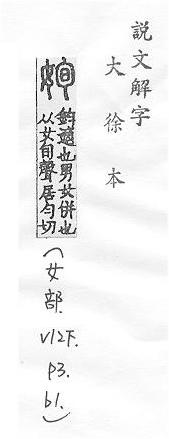 說文解字
大徐本
姰
鈞適也男女併也
从女旬聲居勻切
(女部. V12下. P3. b1.)